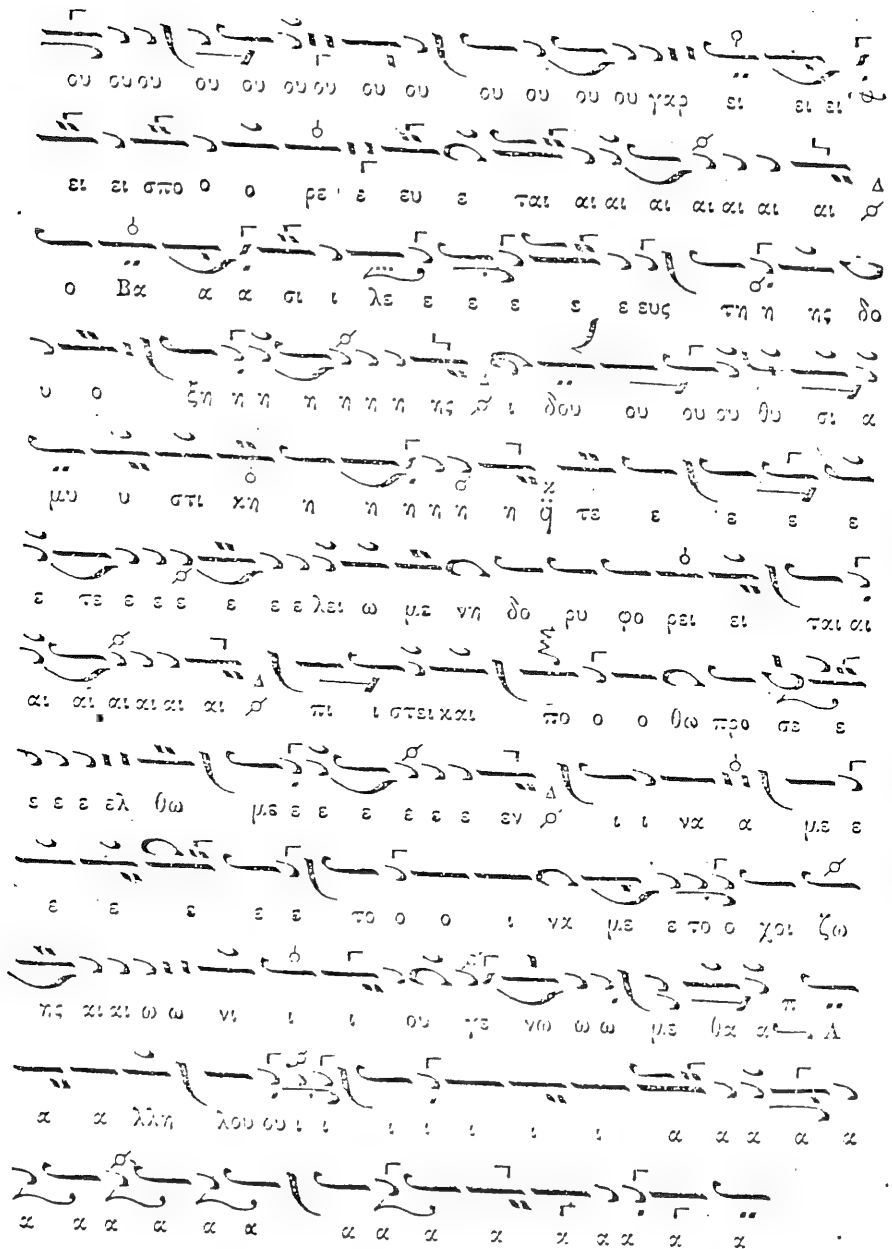 ου ου ου ου ου ου ου ου ου ου ου ου ου γαρ ει ει ει
ει ει σπο ο ο ρε ε ευ ε ται αι αι αι αι αι αι αι Δ
ο Βα α α σι ι λε ε ε ε ε ε ευς τη η ης δο
υ ο ξη η η η η η η ης ι δου ου ου ου θυ σι α
μυ υ στι κη η η η η η η π̈ τε ε ε ε ε
ε τε ε ε ε ε ε ε λει ω με νη δο ρυ φο ρει ει ται αι
αι αι αι αι αι αι Δ πι ι στει και πο ο ο θω προ σε ε
ε ε ε ελ θω με ε ε ε ε ε ε εν Δ ι ι να α με ε
ε ε ε ε ε το ο ο ι να με ε το ο χοι ζω
ης αι αι ω ω νι ι ι ου γε νω ω ω με θα α π Α
α α λλη λου ου ι ι ι ι ι ι ι α α α α α
α α α α α α α α α α α α α α α